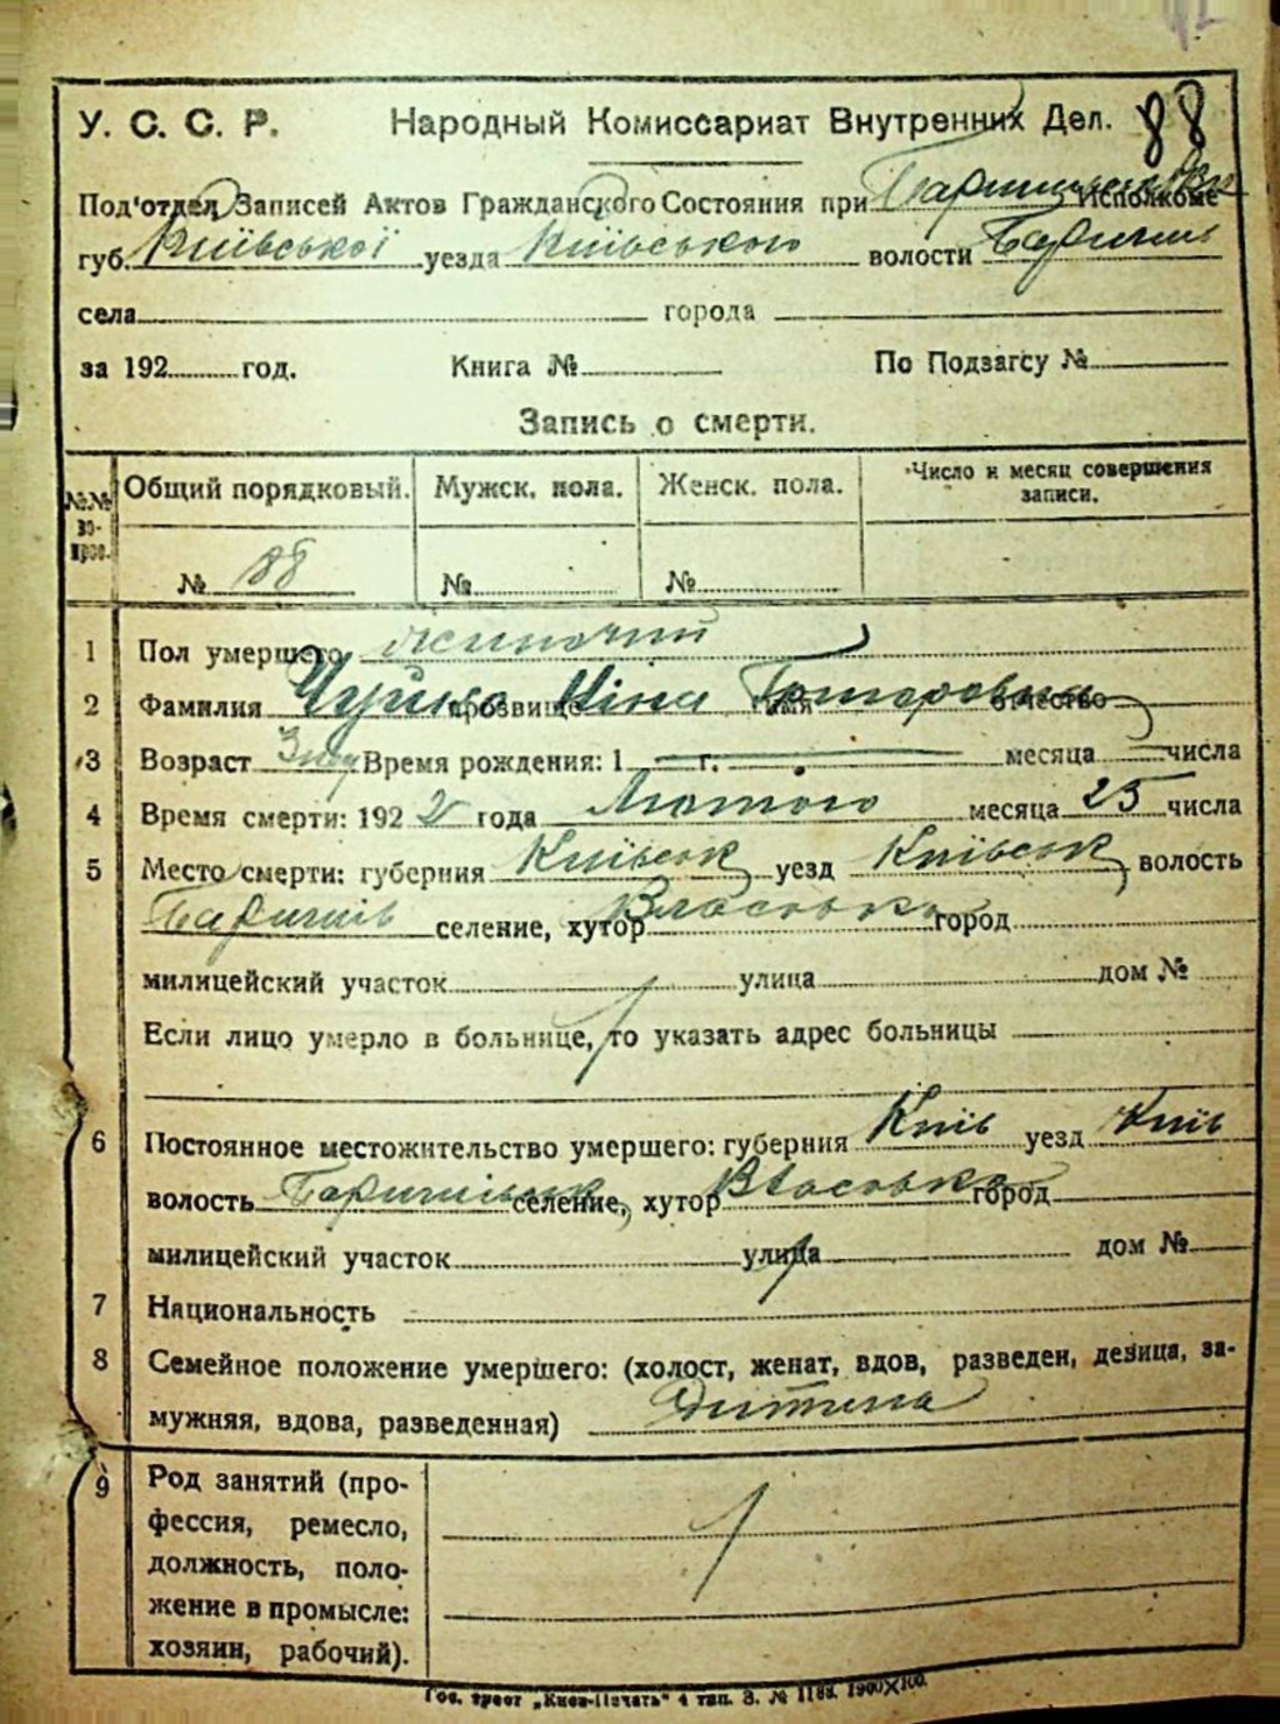 У. С. С. Р. Народный Комиссариат Внутренних Дел. 88
Под'отдел Записей Актов Гражданского Состояния при Исполкоме
губ. Київської уезда Київського волости Баришів
села города
за 192 год. Книга № По Подзагсу №
Запись о смерти.
№№ во-прос. Общий порядковый. Мужск. пола. Женск. пола. Число и месяц совершения записи.
№ 88 № №
1 Пол умершего жиночий
2 Фамилия прозвище Ніна имя Григоровна отчество
3 Возраст Время рождения: 1 г. месяца числа
4 Время смерти: 192 2 года Лютого месяца 25 числа
5 Место смерти: губерния Київськ уезд Київськ волость
Баришів селение, хутор Власовка город
милицейский участок улица дом №
Если лицо умерло в больнице, то указать адрес больницы
6 Постоянное местожительство умершего: губерния Київ уезд Київ
волость Баришівськ селение, хутор Власовка город
милицейский участок улица дом №
7 Национальность
8 Семейное положение умершего: (холост, женат, вдов, разведен, девица, за-
мужняя, вдова, разведенная) Дитина
9 Род занятий (про-
фессия, ремесло,
должность, поло-
жение в промысле:
хозяин, рабочий).
Гос. трест „Киев-Печать“ 4 тип. З. № 1188. 1900×100.